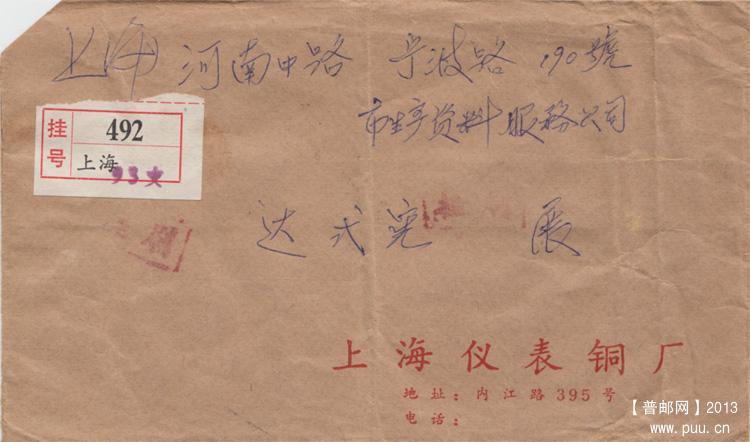 上海 河南中路 宁波路 190號
市生产资料服務公司
挂号
492
上海
93支
达式宪 展
上海仪表铜厂
地址：内江路395号
电话：
【普邮网】2013
www.puu.cn